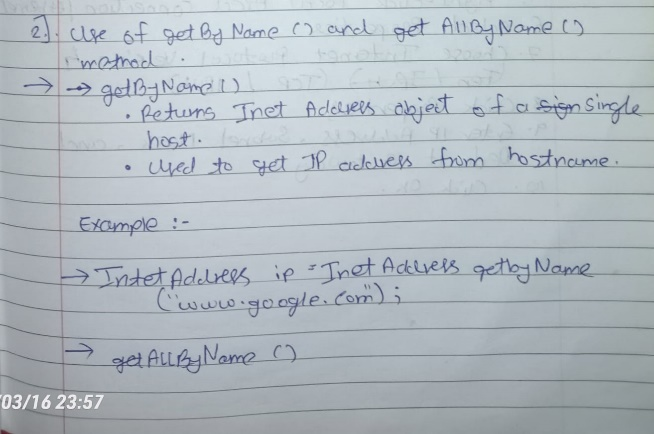 2]. Use of getByName () and get AllByName ()
method.
→ → getByName()
• Returns Inet Address object of a sign single
host.
• Used to get IP address from hostname.
Example :-
→ IntetAddress ip = Inet Address getbyName
("www.google.com");
→ getAllByName ()
03/16 23:57